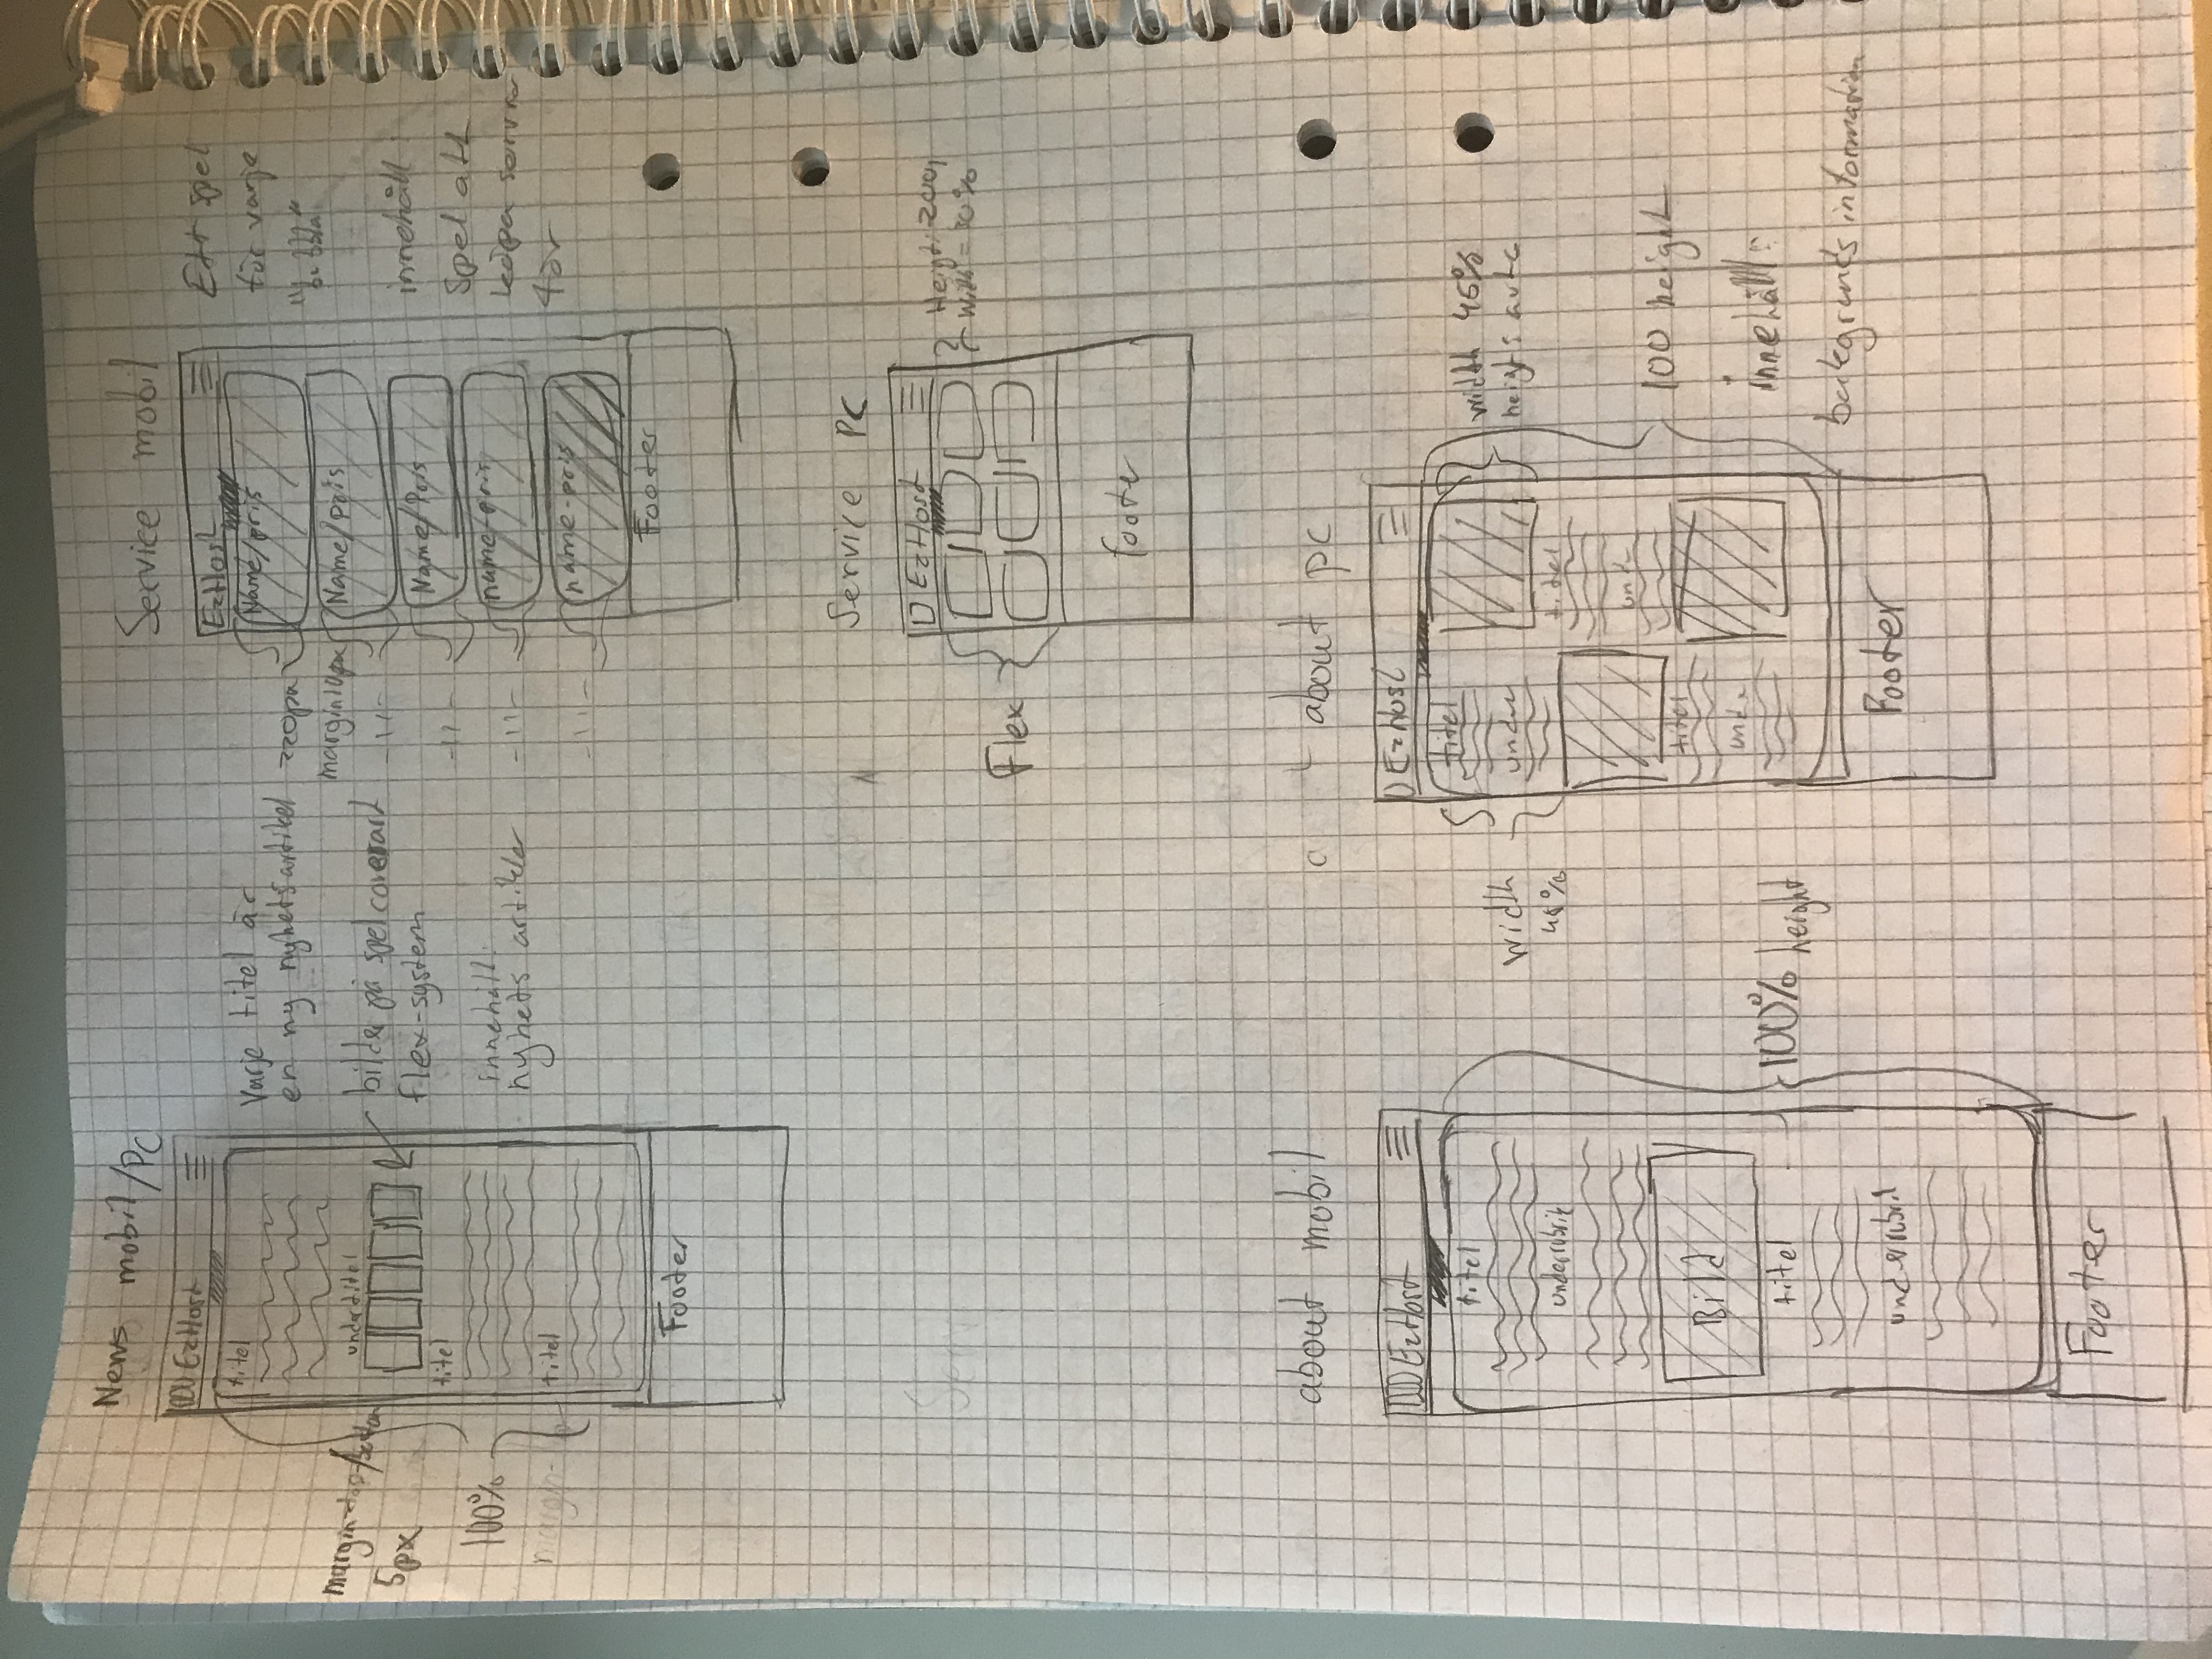 News mobil/PC
EzHost
titel
undertitel
titel
titel
Footer
margin-top-/bottom
5px
100%
margin-
Varje titel är
en ny nyhetsartikel
bilder på spel coverart
flex-system
innehåll:
nyhets artiklar
Service mobil
EzHost
Name/pris
Name/pris
Name/Pris
name-pris
name-pris
Footer
margin 10px
-11-
-11-
-11-
-11-
Ett spel
för varje
"bubbla"
innehåll:
Spel att
köpa servrar
för
Service PC
EzHost
Flex
Width = 30%
foote
about mobil
EzHost
titel
underrubrik
Bild
titel
underrubrik
Footer
100% height
about pc
EzHost
titel
under
titel
unde
titel
unde
Footer
width
45%
width 45%
height: auto
100 height
innehåll:
bakgrunds information